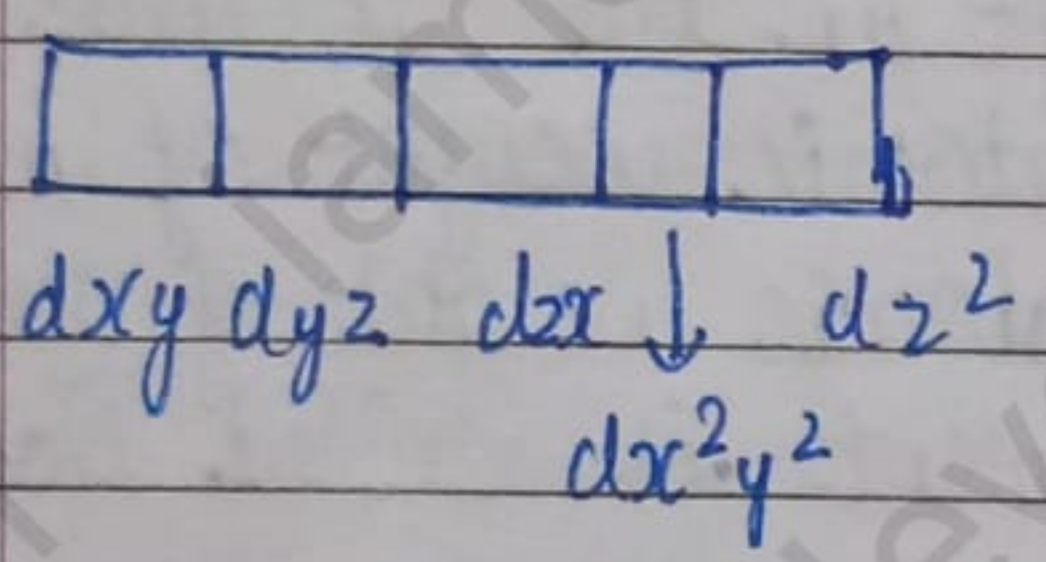 dxy dyz dzx ↓ dz²
dx²y²